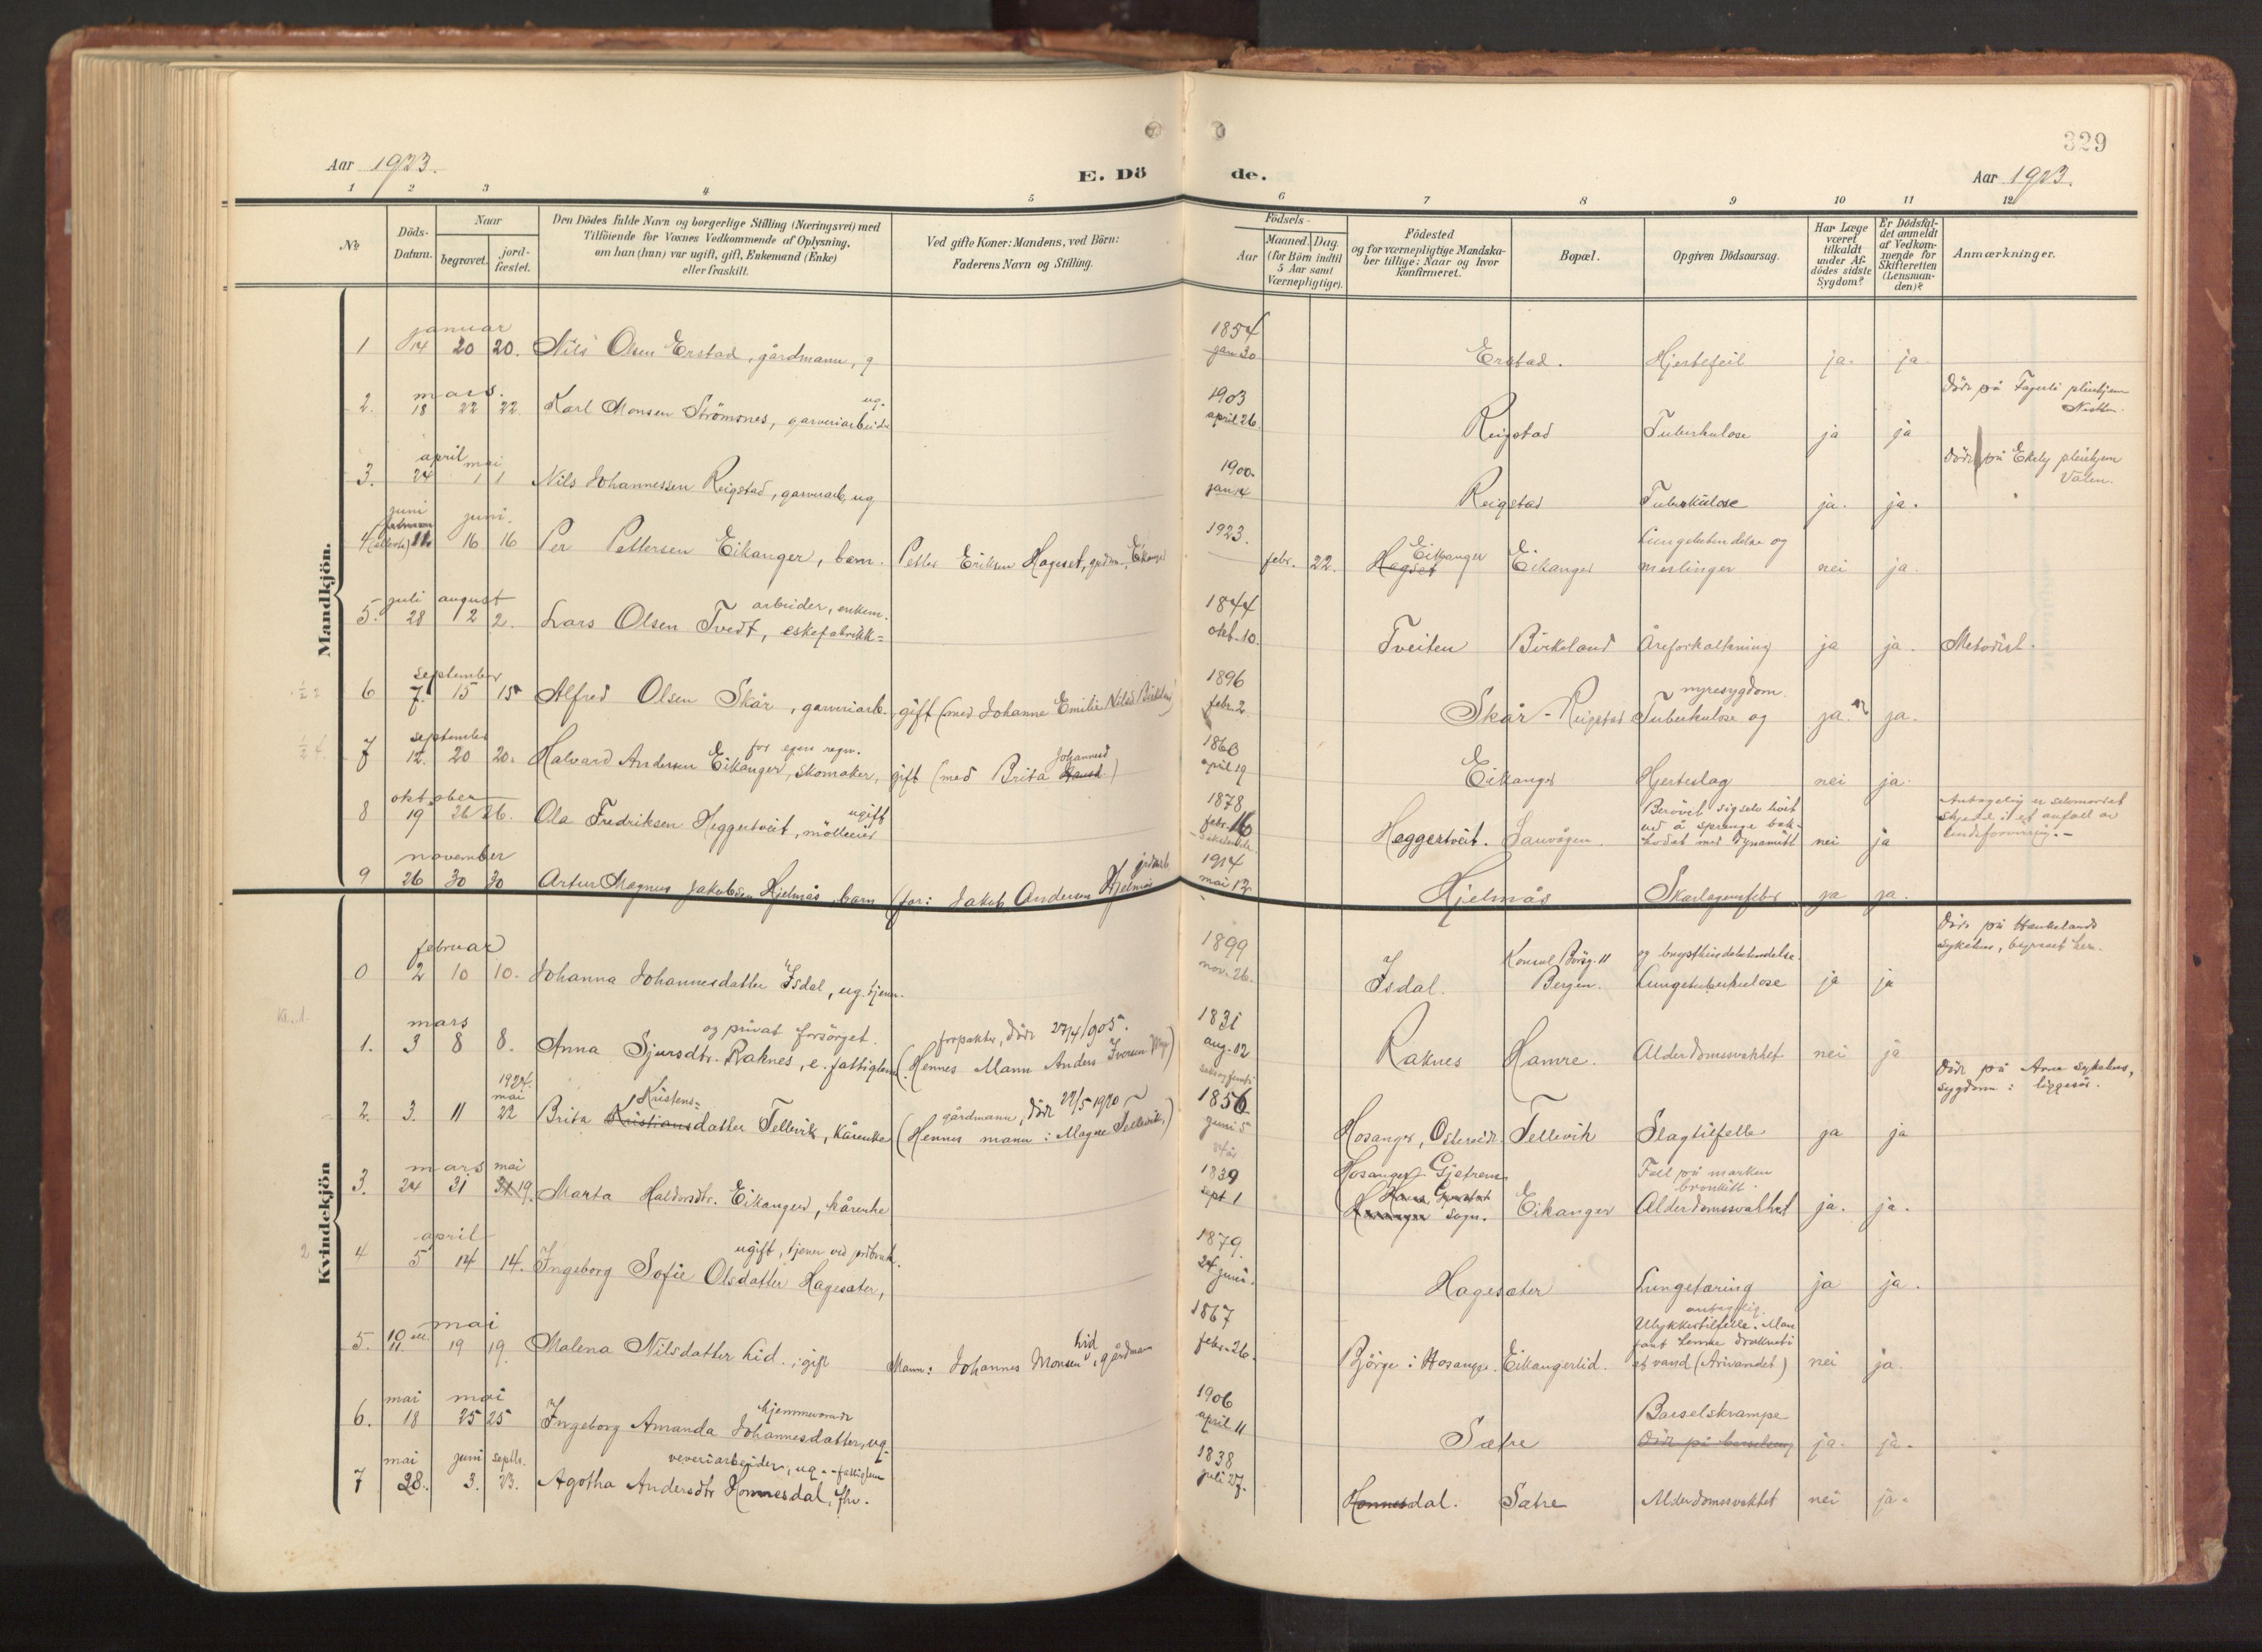 329
Aar 1923.
E. Döde.
Aar 1923.
1 2 3 4 5 6 7 8 9 10 11 12
№
Döds-Datum.
Naar
begravet.
jord-fæstet.
Den Dödes fulde Navn og borgerlige Stilling (Næringsvei) med
Tilföiende for Voxnes Vedkommende af Oplysning,
om han (hun) var ugift, gift, Enkemand (Enke)
eller fraskilt.
Ved gifte Koner: Mandens, ved Börn:
Faderens Navn og Stilling.
Födsels-
Aar
Maaned. Dag.
(for Börn indtil
5 Aar samt
Værnepligtige).
Födested
og for værnepligtige Mandska-
ber tillige: Naar og hvor
konfirmeret.
Bopæl.
Opgiven Dödsaarsag.
Har Læge
været
tilkaldt
under Af-
dödes sidste
Sygdom?
Er Dödsfal-
det anmeldt
af Vedkom-
mende for
Skifteretten
(Lensman-
den)?
Anmærkninger.
Mandkjön.
januar
1 14 20 20. Nils Olsen Erstad, gårdmann, g 1854 jan 30 Erstad. Hjertefeil ja. ja.
mars.
2. 18 22 22. Karl Monsen Strömsnes, garveriarbeider ug. 1903 april 26. Reigstad Tuberkulose ja ja Döde på Fagerli pleiehjem
april mai
3. 24 1 1 Nils Johannessen Reigstad, garveriarb, ug 1900. jan 14 Reigstad Tuberkulose ja. ja. Döde på Ekely pleiehjem Valen.
juni juni.
4 11. 16 16 Per Pettersen Eikanger, barn. Petter Eriksen Hageset, Eikanger 1923. febr. 22. Hagset Eikanger Eikanger Lungebetendelse og meslinger nei ja.
juli august
5. 28 2 2. Lars Olsen Tvedt, eskefabrikk=arbeider, enkem. 1844 okt. 10. Tveiten Birkeland Åreforkalkning ja ja. Metodist.
september
6 7. 15 15 Alfred Olsen Skår, garveriarb., gift (med Johanne Emilie Nilsd 1896 febr. 2 Skår - Reigstad Tuberkulose og nyresygdom. ja. ja.
september
7 12. 20 20. Halvard Andersen Eikanger, skomaker, for egen regn. gift (med Brita Johannesd) april 19 Eikanger Hjerteslag nei ja.
oktober
8 19 26 26. Ola Fredriksen Heggertveit, mölleeier ugift 1878. febr. 16 Heggertveit. Sauvågen. Berövet sig selv livet
ved å sprenge bak-
hodet med dynamitt nei ja Antagelig er selvmordet
skjedd i et anfall av
sindsforvirring.-
november
9 26 30 30 Artur Magnus Jakobsen Hjelmås, barn (far: Jakob Andersen Hjelmås jordarb 1914 mai 12 Hjelmås Skarlagensfeber ja ja.
Kvindekjön
februar
0 2 10 10. Johanna Johannesdatter Isdal, ug. tjener. 1899 nov. 26. Isdal. Konsul Börsg. 11 Bergen. Lungetuberkulose og brysthindebetendelse. ja ja Döde på Haukelands
sykehus, begravet her.
mars
1. 3 8 8. Anna Sjursdtr. Raknes, e. fattiglem og privat forsörget. (Hennes Mann Anders Iversen forpakter, döde 27/4/905. 1831 aug. 12 Raknes Hamre. Alderdomssvakhet nei ja
1924. mai
2. 3. 11 22 Brita Kristians Kristens=datter Tellevik, kårenke (Hennes mann: Magne Tellevik, gårdmann, döde 22/5 1920) 1856 juni 5 Hosanger, Tellevik Slagtilfelle ja ja Döde på Arna sykehus,
sygdom: liggesår.
mars mai
3. 24 31 31 19. Marta Haldorsdtr. Eikanger, kårenke 1839 sept 1 Hosanger sogn. Eikanger Fall på marken
bronkitt.
Alderdomssvakhet ja. ja.
april
4 5 14 14. Ingeborg Sofie Olsdatter Hagesæter, ugift, tjener ved jordbruk. 1879. 24 juni. Hagesæter Lungetæring ja ja.
mai
5. 10 ell. 11. 19 19. Malena Nilsdatter Lid., gift Mann: Johannes Monsen Lid, gårdmann 1867 febr. 26. Bjørge i Hosanger. Eikangerlid. antagelig.
Ulykkestilfelle. Man
fant henne druknet i
et vand (Arivandet) nei ja.
mai mai
6. 18 25 25 Ingeborg Amanda Johannesdatter, ug. hjemmeværende 1906 april 11 Sætre Barselskrampe
Döde på barselseng ja. ja.
mai juni septbr.
7 28. 3. 23. Agotha Andersdtr Honnesdal, fhv. veveriarbeider, ug. - fattiglem 1838 juli 27. Honnesdal. Sætre Alderdomssvakhet nei ja.